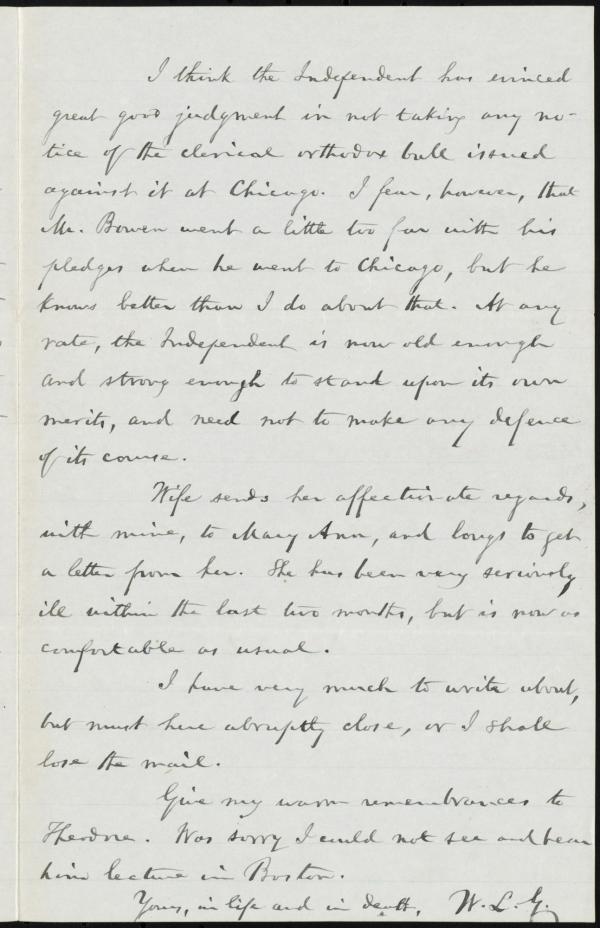 I think the Independent has evinced
great good judgment in not taking any no-
tice of the clerical orthodox bull issued
against it at Chicago. I fear, however, that
Mr. Bowen went a little too far with his
pledges when he went to Chicago, but he
knows better than I do about that. At any
rate, the Independent is now old enough
and strong enough to stand upon its own
merits, and need not to make any defence
of its course.
Wife sends her affectionate regards,
with mine, to Mary Ann, and longs to get
a letter from her. She has been very seriously
ill within the last two months, but is now as
comfortable as usual.
I have very much to write about,
but must here abruptly close, or I shall
lose the mail.
Give my warm remembrances to
Theodore. Was sorry I could not see and hear
him lecture in Boston.
Yours, in life and in death, W. L. G.